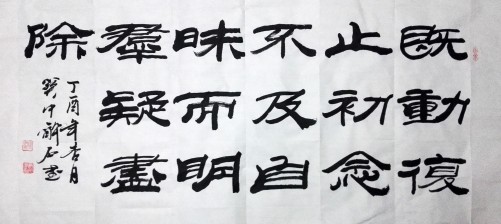 既動復
止初念
不及自
昧而明
羣疑盡
除
丁酉年杏月
中醉石書